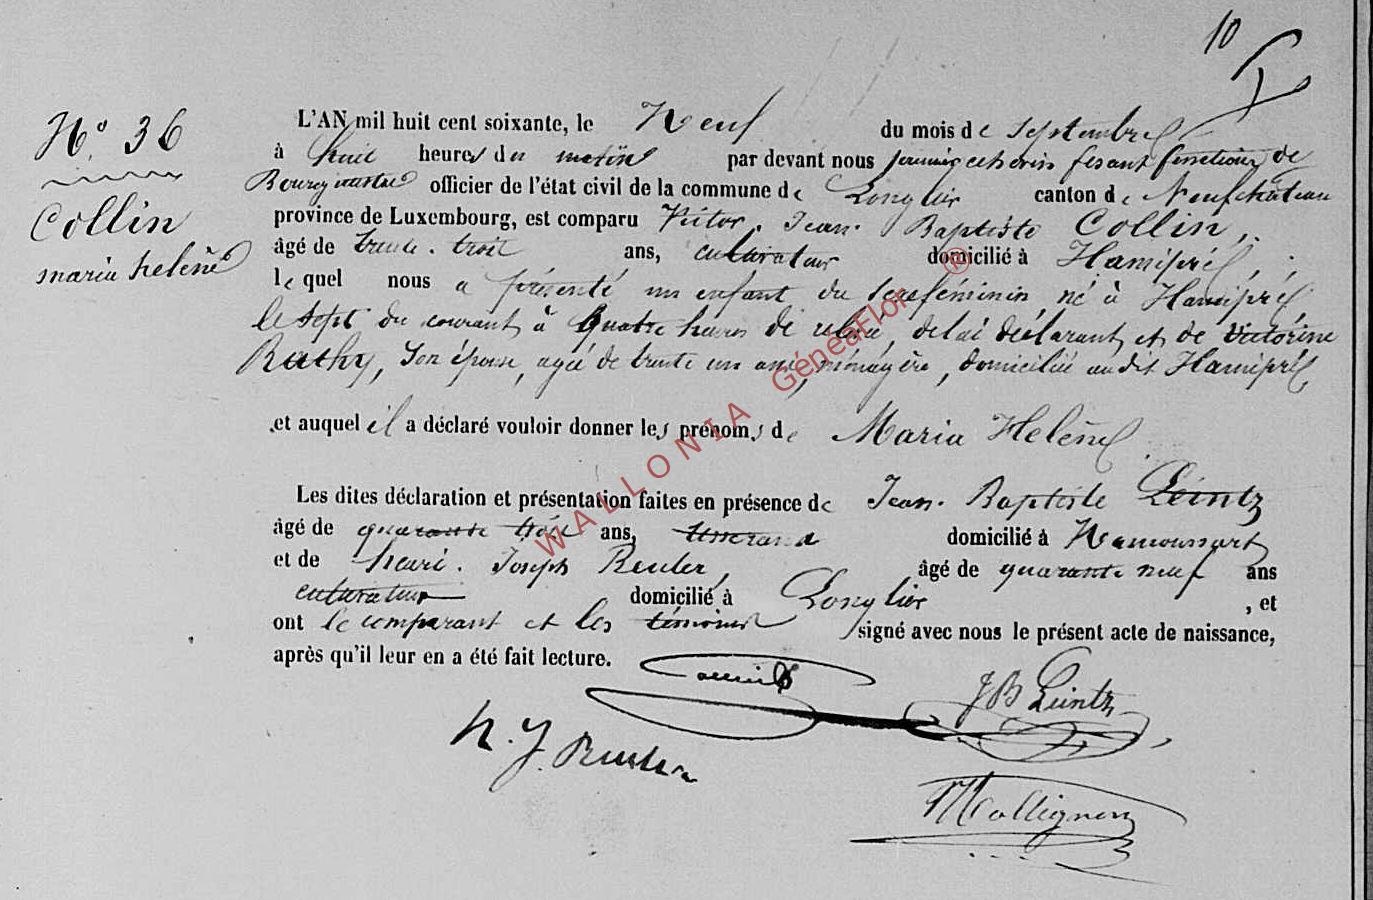 10
N° 36
Collin
maria heléne
L'AN mil huit cent soixante, le Neuf du mois de Septembre
à huit heures du matin par devant nous premier echevin fesant fonctions de
Bourgmestre officier de l'état civil de la commune de Longlier canton de Neufchateau
province de Luxembourg, est comparu Victor. Jean. Baptiste Collin,
âgé de trente. trois ans, cultivateur domicilié à Hamipré,
lequel nous a présenté un enfant du sexe féminin né à Hamipré
le sept du courant à quatre heures de relevé, de lui déclarant et de Victorine
Bathy, son épouse, agée de trente un ans, ménagère, domiciliée audit Hamipré
et auquel il a déclaré vouloir donner les prénoms de Maria Heléne
Les dites déclaration et présentation faites en présence de Jean. Baptiste Leintz
âgé de quarante trois ans, tisserand domicilié à Namoussart
et de henri. Joseph Reuler, âgé de quarante neuf ans
cultivateur domicilié à Longlier, et
ont le comparant et les témoins signé avec nous le présent acte de naissance,
après qu'il leur en a été fait lecture.
JB Leintz
h. J. Reuler
Collignon
WALLONIA GénéaFlor ®